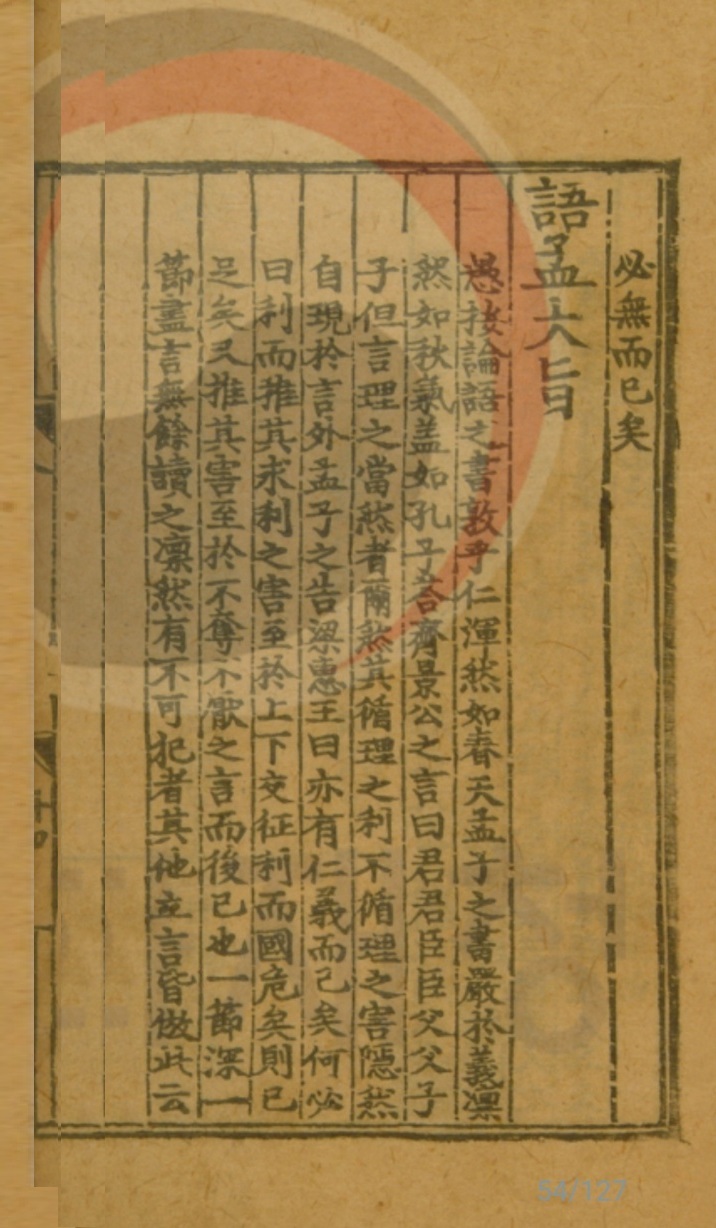 必無而已矣
語孟大旨
愚按論語之書敦乎仁渾然如春天孟子之書嚴於義凜
然如秋氣盖如孔子荅齊景公之言曰君君臣臣父父子
子但言理之當然者爾然其循理之利不循理之害隱然
自現於言外孟子之告梁惠王曰亦有仁義而已矣何必
曰利而推其求利之害至於上下交征利而國危矣則已
足矣又推其害至於不奪不厭之言而後已也一節深一
節盡言無餘讀之凛然有不可犯者其他立言皆倣此云
十四
54/127